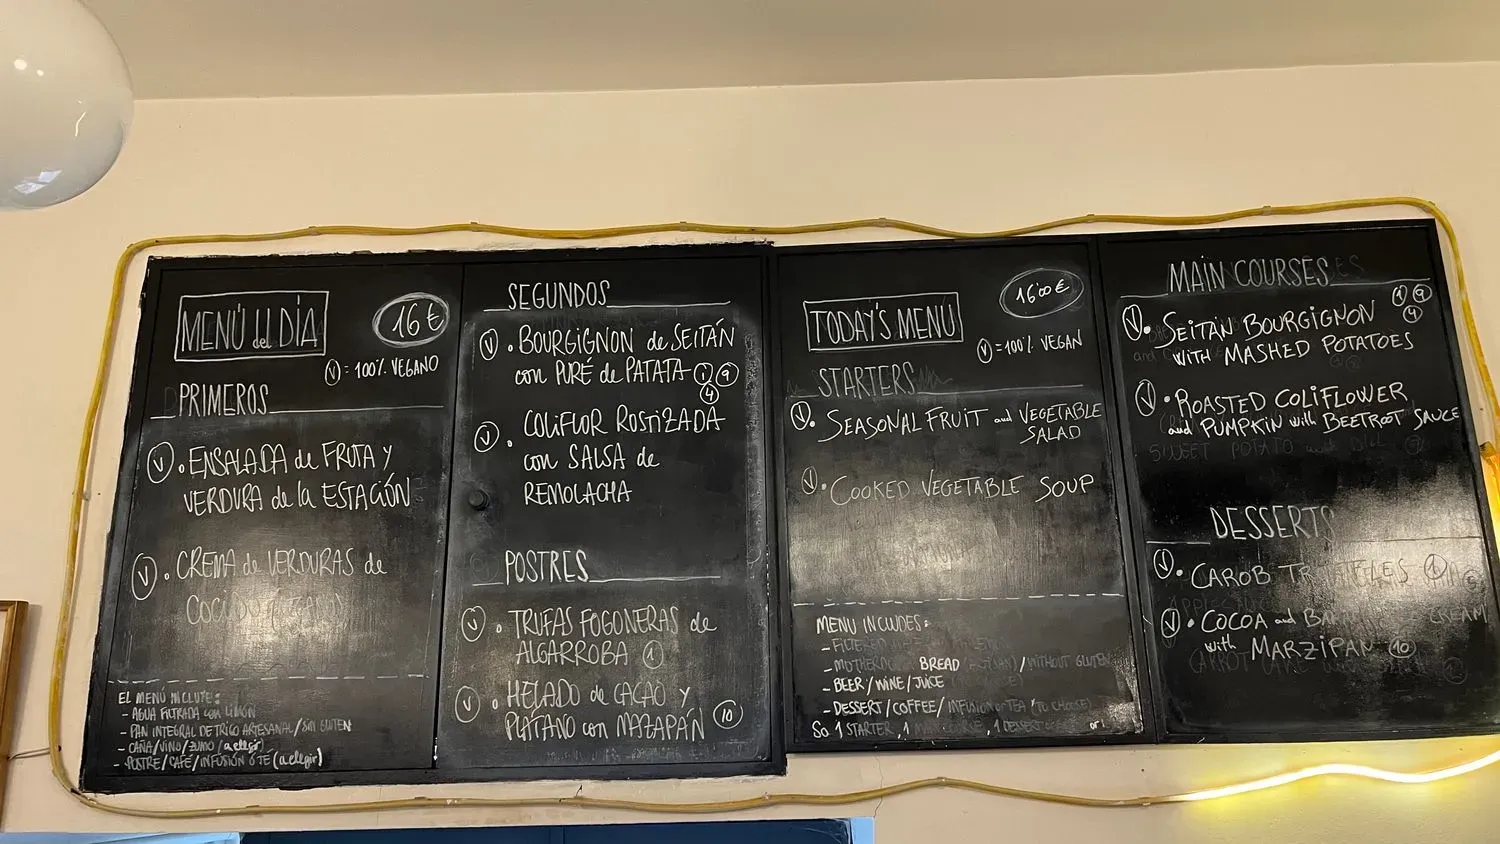 MENÚ del DÍA
16 €
Ⓥ = 100% VEGANO
PRIMEROS
Ⓥ • ENSALADA de FRUTA Y
VERDURA de la ESTACIÓN
Ⓥ • CREMA de VERDURAS de
COCIDO
EL MENÚ INCLUTE:
- AGUA FILTRADA con LIMÓN
- PAN INTEGRAL DE TRIGO ARTESANAL/SIN GLUTEN
- CAÑA/VINO/ZUMO/(a elegir)
- POSTRE/CAFÉ/INFUSIÓN O TÉ (a elegir)
SEGUNDOS
Ⓥ • BOURGIGNON de SEITÁN
con PURÉ de PATATA ① ⑨
④
Ⓥ • COLIFLOR ROSTIZADA
con SALSA de
REMOLACHA
POSTRES
Ⓥ • TRUFAS FOGONERAS de
ALGARROBA ①
Ⓥ • HELADO de CACAO Y
PLÁTANO con MAZAPÁN ⑩
TODAY'S MENÚ
16'00 €
Ⓥ = 100% VEGAN
STARTERS
Ⓥ • SEASONAL FRUIT and VEGETABLE
SALAD
Ⓥ • COOKED VEGETABLE SOUP
MENU INCLUDES:
- FILTERED
- BREAD /WITHOUT GLUTEN
- BEER/WINE/JUICE
- DESSERT/COFFEE/INFUSION or TEA (TO CHOOSE)
So 1 STARTER, 1 1 DESSERT or
MAIN COURSES
Ⓥ • SEITAN BOURGIGNON ① ⑨
④
WITH MASHED POTATOES
Ⓥ • ROASTED COLIFLOWER
and PUMPKIN with BEETROOT SAUCE
DESSERTS
Ⓥ • CAROB TRUFFLES ①
Ⓥ • COCOA and CREAM
with MARZIPAN ⑩